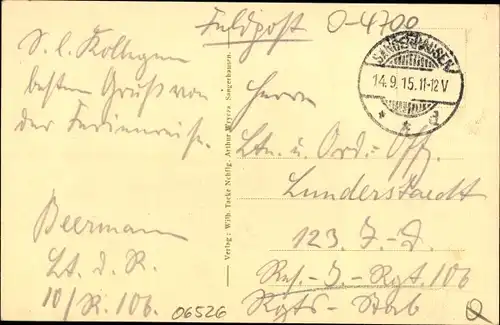 Feldpost
O-4700
SANGERHAUSEN
14.9.15.11-12V
* * d
S. l. Kollegen
besten Gruß von
der Ferienreise.
Beermann
Lt. d. R.
10/R. 106.
06526
Verlag: Wilh. Tacke Nchflg. Arthur Sangerhausen.
Herrn
Ltn. u. Ord.-Off.
Lunderstaedt
123. J.-D.
Res.-J.-Rgt. 106
Rgts-Stab